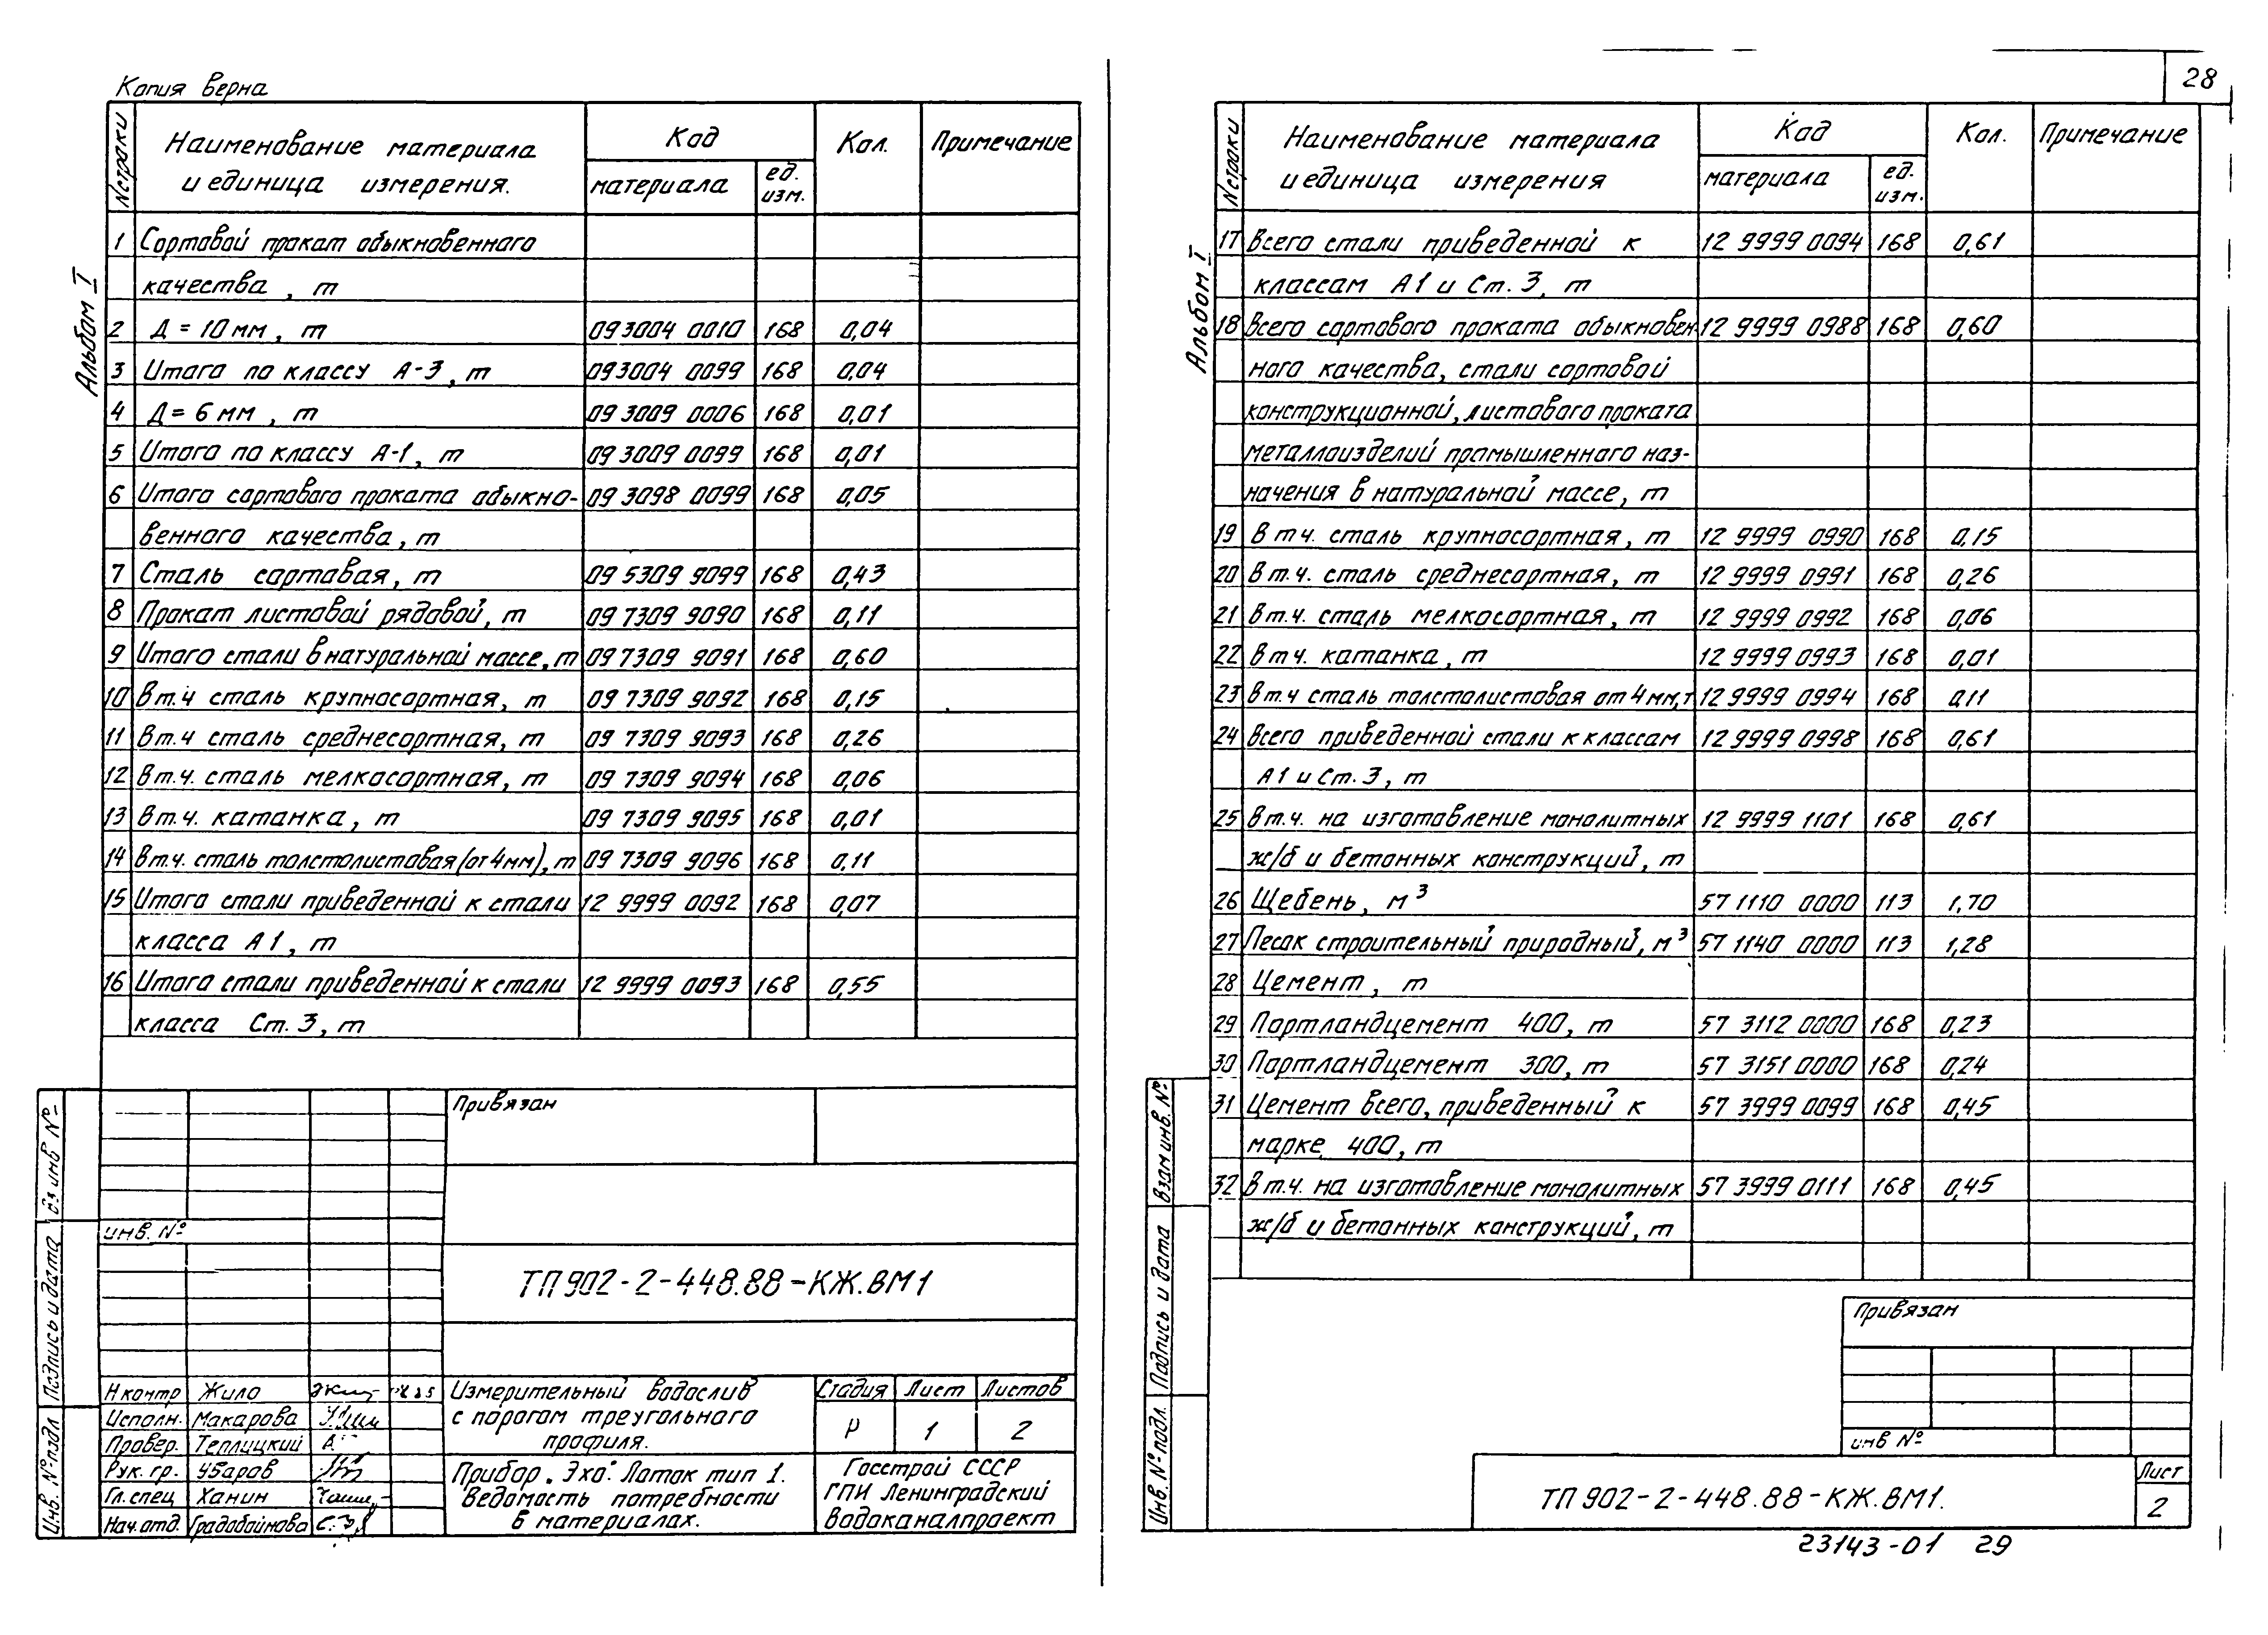 Копия верна
Альбом I
№ строки | Наименование материала и единица измерения. | Код | Кол. | Примечание
материала | ед. изм.
1 Сортовой прокат обыкновенного
качества, т
2 Д = 10 мм, т 093004 0010 168 0,04
3 Итого по классу А-3, т 093004 0099 168 0,04
4 Д = 6 мм, т 09 3009 0006 168 0,01
5 Итого по классу А-1, т 09 3009 0099 168 0,01
6 Итого сортового проката обыкно- 09 3098 0099 168 0,05
венного качества, т
7 Сталь сортовая, т 09 5309 9099 168 0,43
8 Прокат листовой рядовой, т 09 7309 9090 168 0,11
9 Итого стали в натуральной массе, т 09 7309 9091 168 0,60
10 В т.ч сталь крупносортная, т 09 7309 9092 168 0,15
11 В т.ч сталь среднесортная, т 09 7309 9093 168 0,26
12 В т.ч. сталь мелкосортная, т 09 7309 9094 168 0,06
13 В т.ч. катанка, т 09 7309 9095 168 0,01
14 В т.ч. сталь толстолистовая (от 4 мм), т 09 7309 9096 168 0,11
15 Итого стали приведенной к стали 12 9999 0092 168 0,07
класса А1, т
16 Итого стали приведенной к стали 12 9999 0093 168 0,55
класса Ст. 3, т
Привязан
инв. №
ТП 902-2-448.88-КЖ.ВМ1
Н контр Жило
Исполн. Макарова
Провер. Теплицкий
Рук. гр. Уваров
Гл. спец Ханин
Нач. отд. Градобойнова
Измерительный водослив
с порогом треугольного
профиля.
Стадия Лист Листов
Р 1 2
Прибор „Эхо". Лоток тип 1.
Ведомость потребности
в материалах.
Госстрой СССР
ГПИ Ленинградский
Водоканалпроект
Вз инв №
Подпись и дата
Инв. № подл
28
Альбом I
№ строки | Наименование материала и единица измерения | Код | Кол. | Примечание
материала | ед. изм.
17 Всего стали приведенной к 12 9999 0094 168 0,61
классам А1 и Ст. 3, т
18 Всего сортового проката обыкновен 12 9999 0988 168 0,60
ного качества, стали сортовой
конструкционной, листового проката
металлоизделий промышленного наз-
начения в натуральной массе, т
19 В т ч. сталь крупносортная, т 12 9999 0990 168 0,15
20 В т.ч. сталь среднесортная, т 12 9999 0991 168 0,26
21 В т.ч. сталь мелкосортная, т 12 9999 0992 168 0,06
22 В т ч. катанка, т 12 9999 0993 168 0,01
23 В т.ч сталь толстолистовая от 4 мм, т 12 9999 0994 168 0,11
24 Всего приведенной стали к классам 12 9999 0998 168 0,61
А1 и Ст. 3, т
25 В т.ч. на изготовление монолитных 12 9999 1101 168 0,61
ж/б и бетонных конструкций, т
26 Щебень, м³ 57 1110 0000 113 1,70
27 Песок строительный природный, м³ 57 1140 0000 113 1,28
28 Цемент, т
29 Портландцемент 400, т 57 3112 0000 168 0,23
30 Портландцемент 300, т 57 3151 0000 168 0,24
31 Цемент всего, приведенный к 57 3999 0099 168 0,45
марке 400, т
32 В т.ч. на изготовление монолитных 57 3999 0111 168 0,45
ж/б и бетонных конструкций, т
Привязан
инв №
ТП 902-2-448.88-КЖ.ВМ1.
Лист
2
Взам инв. №
Подпись и дата
Инв. № подл.
23143-01 29